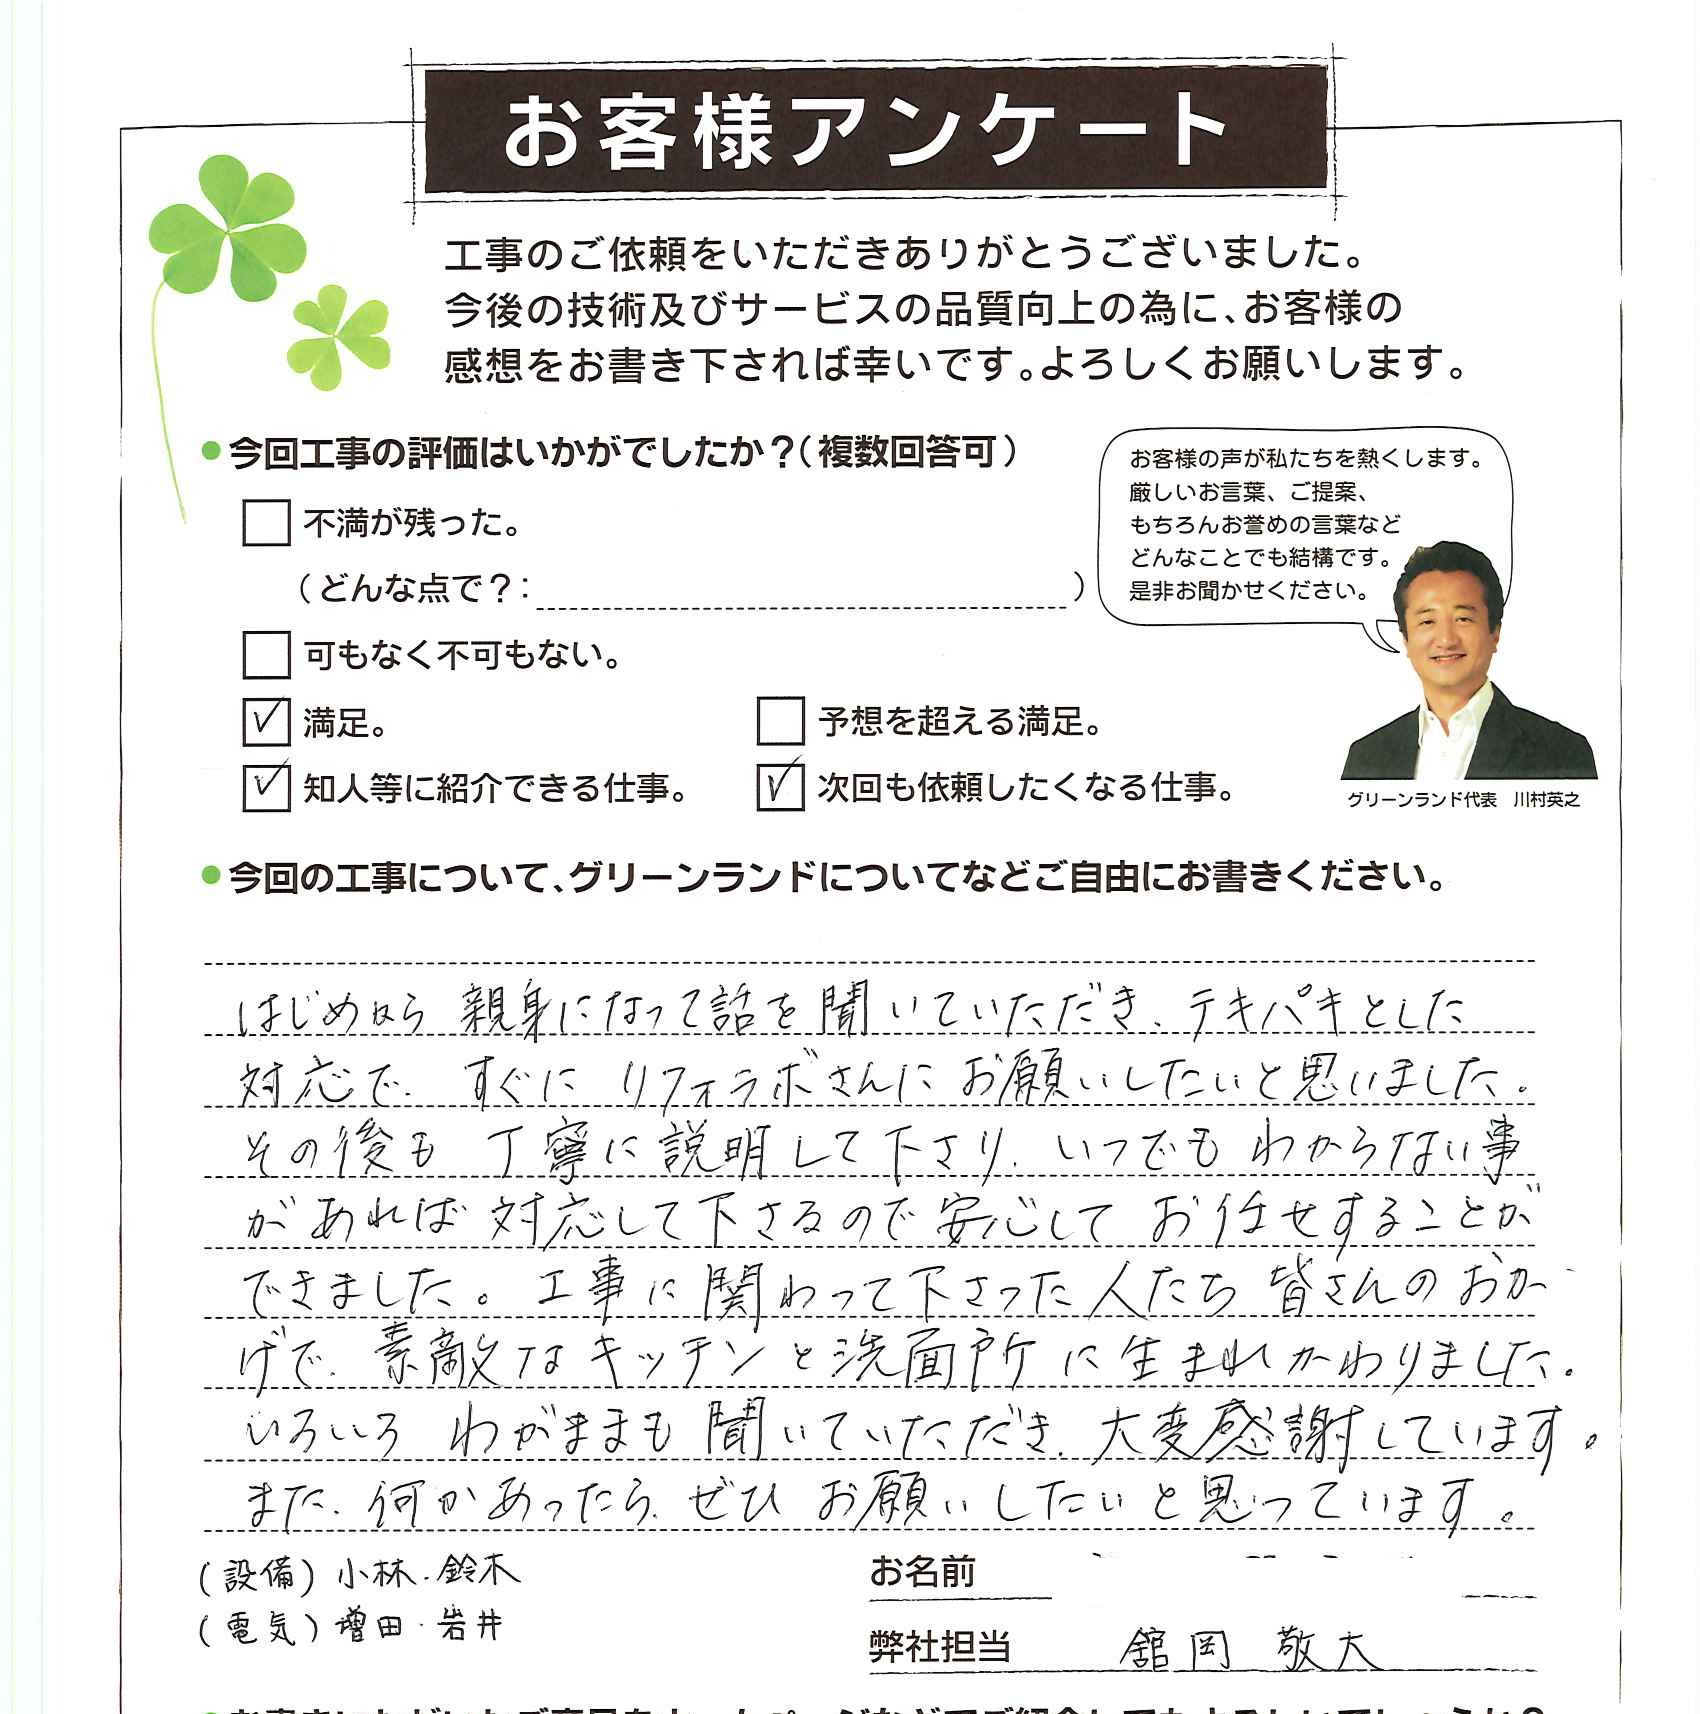 お客様アンケート
工事のご依頼をいただきありがとうございました。
今後の技術及びサービスの品質向上の為に、お客様の
感想をお書き下されば幸いです。よろしくお願いします。
●今回工事の評価はいかがでしたか？（複数回答可）
不満が残った。
（どんな点で？： ）
可もなく不可もない。
満足。
予想を超える満足。
知人等に紹介できる仕事。
次回も依頼したくなる仕事。
お客様の声が私たちを熱くします。
厳しいお言葉、ご提案、
もちろんお誉めの言葉など
どんなことでも結構です。
是非お聞かせください。
グリーンランド代表　川村英之
●今回の工事について、グリーンランドについてなどご自由にお書きください。
はじめから 親身になって話を聞いていただき、テキパキとした
対応で、すぐに リフォラボさんに お願いしたいと思いました。
その後も 丁寧に説明して下さり、いつでも わからない事
があれば 対応して下さるので安心して お任せすることが
できました。工事に関わって下さった人たち 皆さんのおか
げで、素敵なキッチンと洗面所に生まれかわりました。
いろいろ わがままも 聞いていただき、大変感謝しています。
また、何かあったら、ぜひ お願いしたいと思っています。
(設備) 小林・鈴木
(電気) 増田・岩井
お名前
弊社担当 舘岡 敬大